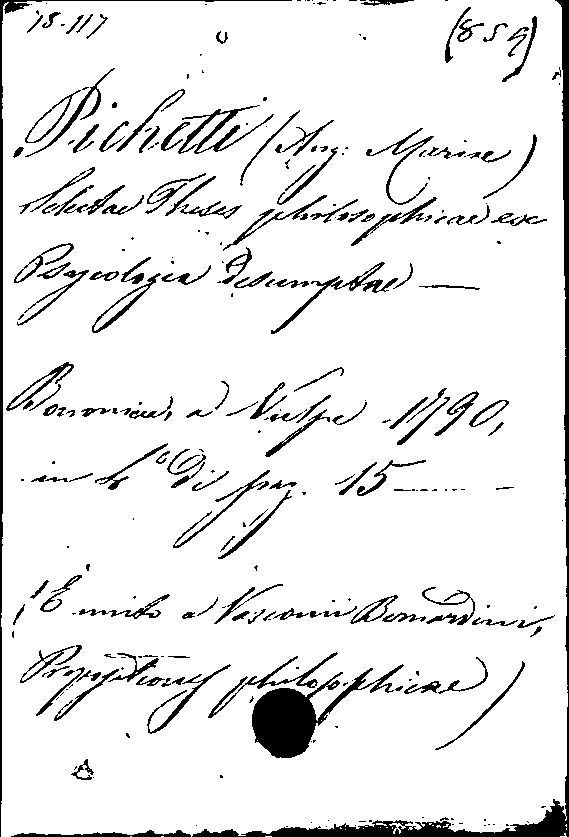 78-117
(859)
Pichetti (Aug: Mariae)
Selectae Theses philosophicae ex
Psycologia desumptae —
Bononiae, a Vulpe 1790,
in 4° di pag. 15 —
(È unito a Vasconii Bernardini,
Propositiones philosophicae)